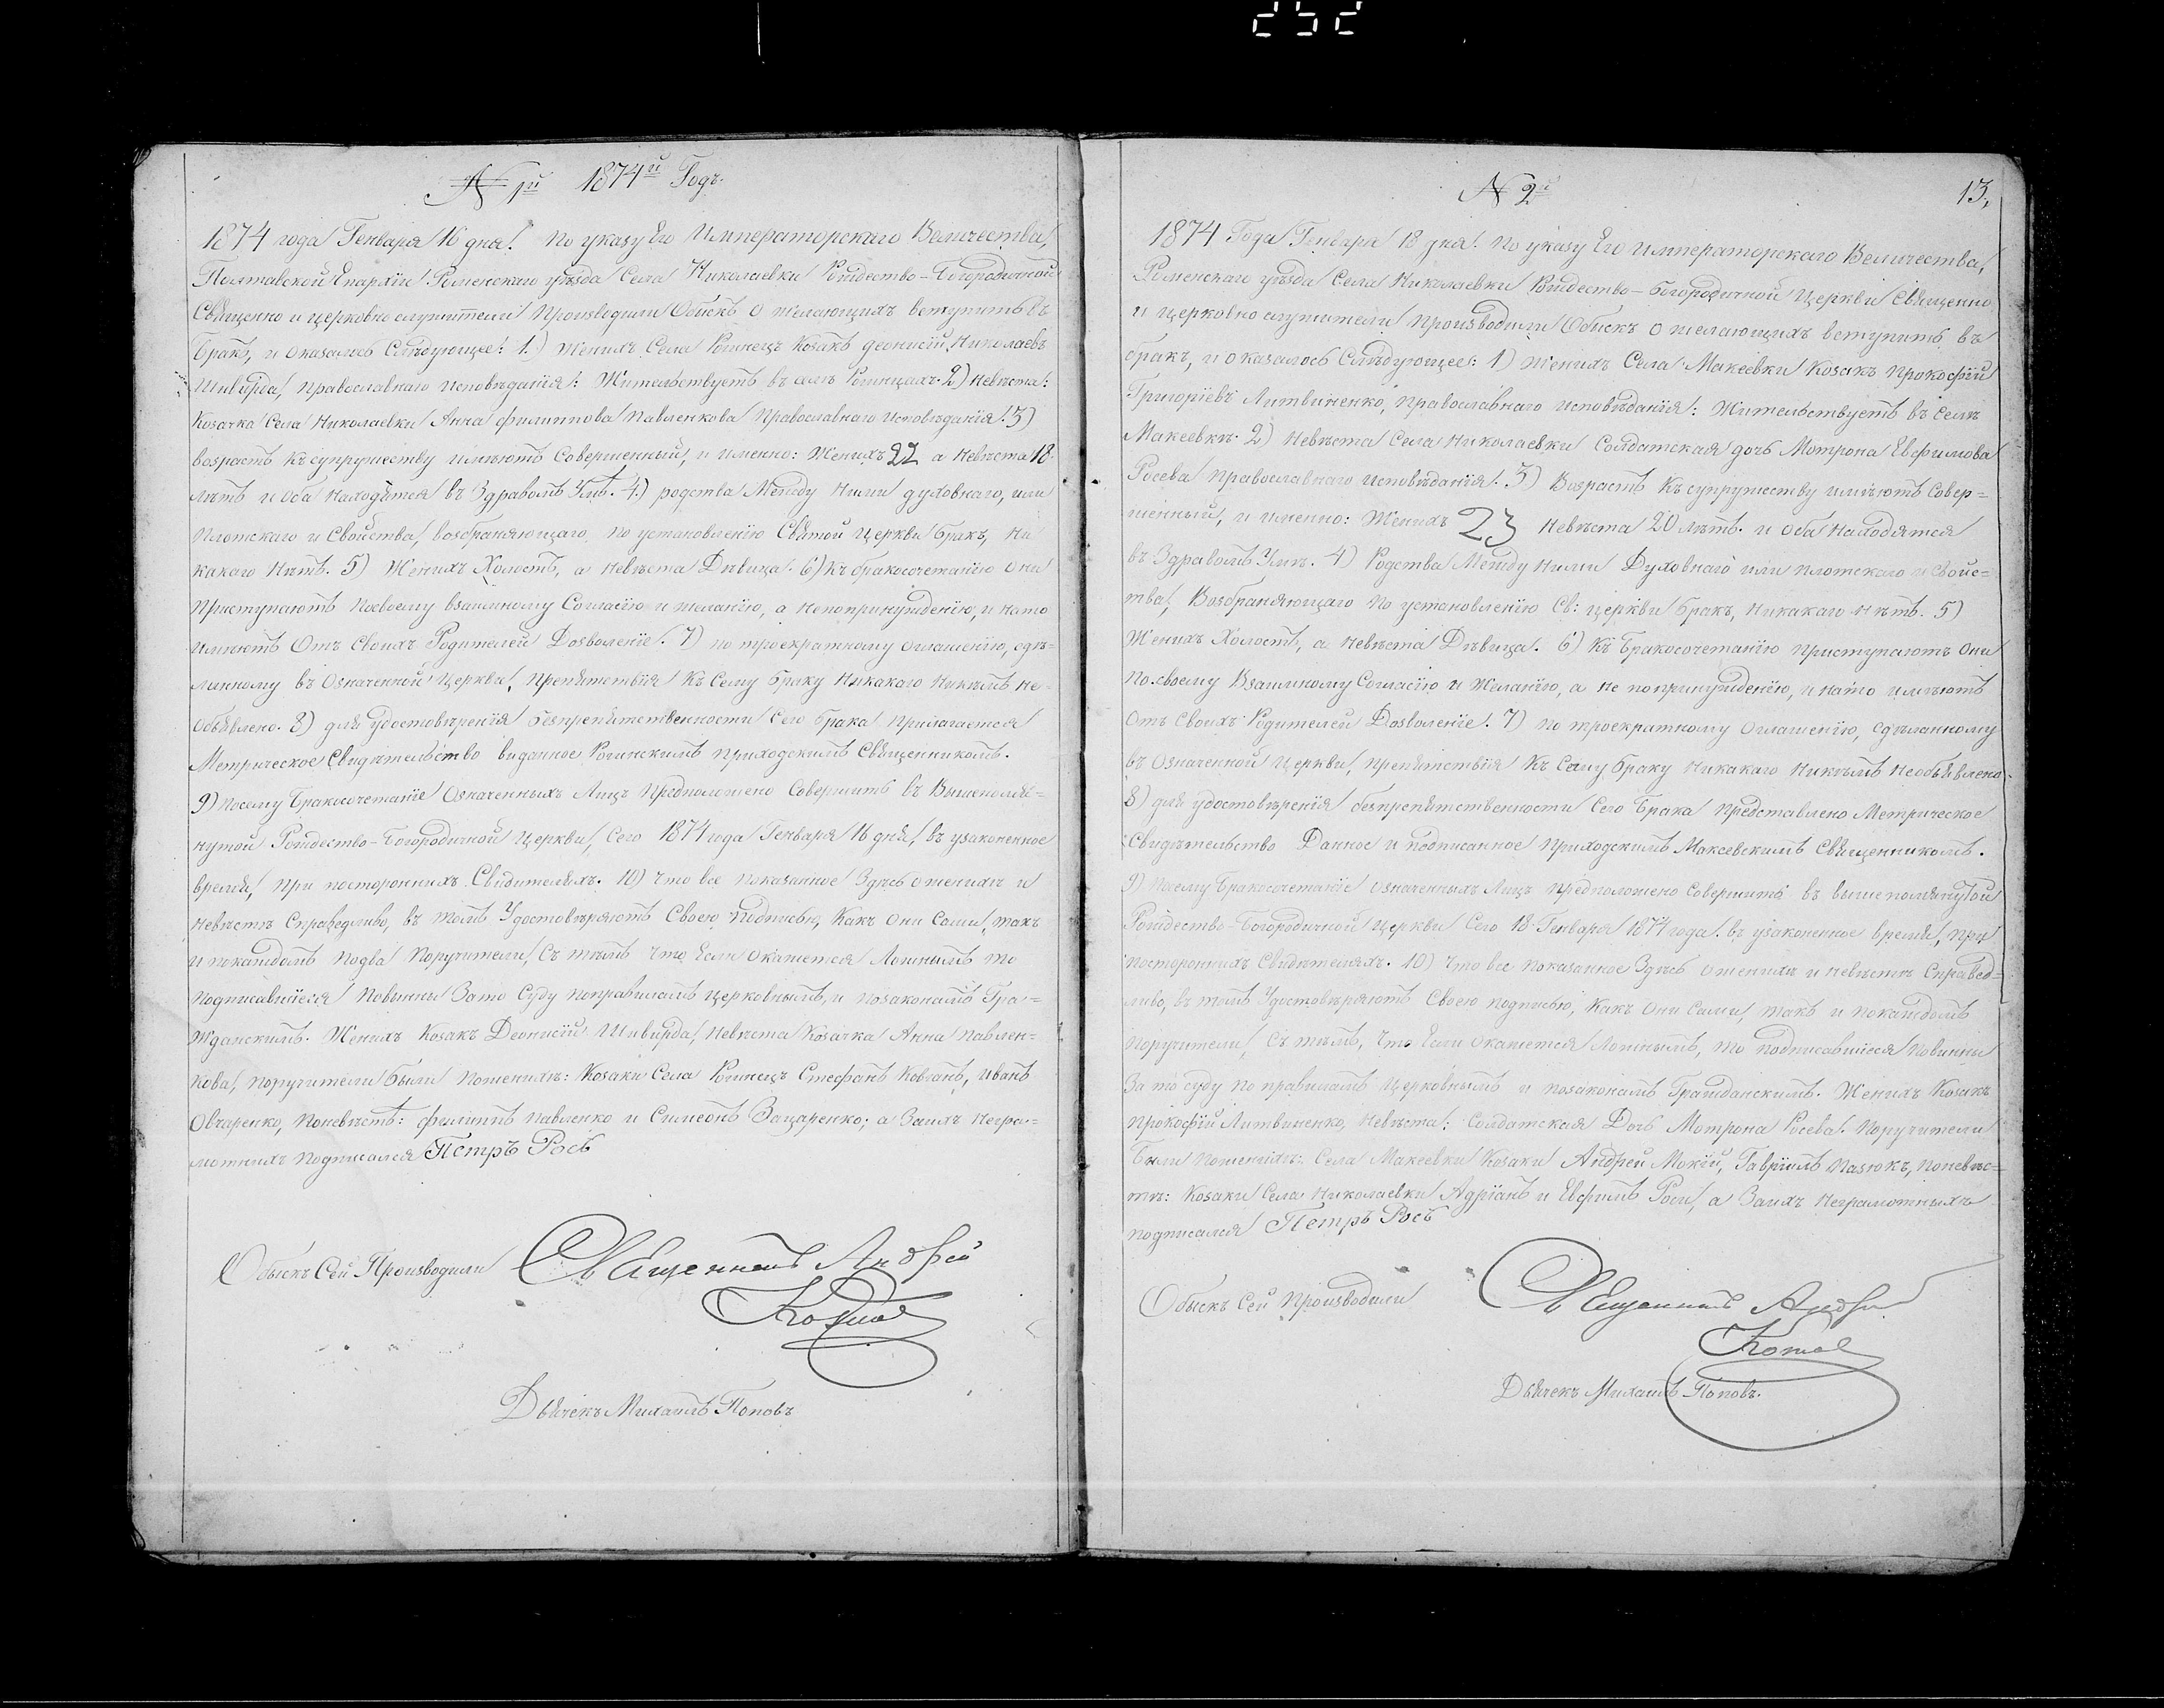 252
№ 1й 1874й Годъ.
1874 года Генваря 16 дня. По указу Его Императорскаго Величества,
Полтавской Епархіи Роменскаго уѣзда Села Николаевки Рождество-Богородичной
Священно и церковно служители производили Обыскъ о желающихъ вступить въ
бракъ, и оказалось Слѣдующее: 1.) Женихъ Села Рогинецъ Козакъ Деонисій Николаевъ
Шивирда, православнаго исповѣданія: Жительствуетъ въ селѣ Рогинцахъ. 2) Невѣста:
Козачка Села Николаевки Анна Филиппова Павленкова Православнаго Исповѣданія. 3)
возрастъ къ супружеству имѣютъ Совершенный, и именно: Женихъ 22 а Невѣста 18
лѣтъ и Оба находятся въ Здравомъ Умѣ. 4.) родства Между Ними духовнаго, или
плотскаго и Свойства, возбраняющаго по установленію Святой Церкви бракъ, Ни
какаго Нѣтъ. 5) Женихъ Холостъ, а Невѣста Дѣвица. 6) Къ бракосочетанію Они
Приступаютъ посвоему взаимному Согласію и желанію, а непопринужденію, и нато
имѣютъ Отъ Своихъ Родителей Дозволеніе. 7) по троекратному оглашенію, сдѣ-
ланному въ Означенной Церкви, препятствія Къ Сему браку Никакого Никѣмъ не-
объявлено. 8) для удостовѣренія безпрепятственности Сего брака прилагается
Метрическое Свидѣтельство виданное Рогинскимъ приходскимъ Священникомъ.
9) посему Бракосочетаніе Означенныхъ Лицъ предположено Совершить въ Вышепомя-
нутой Рождество-Богородичной Церкви, Сего 1874 года Генваря 16 дня, въ узаконенное
время, при постороннихъ Свидителяхъ. 10) что все показанное Здѣсь о женихѣ и
Невѣстѣ Справедливо, въ томъ Удостовѣряютъ Своею Подписью, Какъ Они Сами, такъ
и покаждомъ подва Поручители, Съ тѣмъ что Если Окажется Ложнымъ то
подписавшіеся Повинны Зато Суду поправиламъ Церковнымъ, и позаконамъ Гра-
жданскимъ. Женихъ Козакъ Деонисій Шивирда, Невѣста Козачка Анна Павлен-
кова, поручители были пожениху: Козаки Села Рогинецъ Стефанъ Ковганъ, Иванъ
Овчаренко, поневѣстѣ: Филиппъ Павленко и Симеонъ Зацаренко; а Заихъ негра-
мотнихъ подписался Петръ Рось
Обыскъ Сей Производили Священникъ Андрей
Дьячекъ Михаилъ Поповъ
№ 2й 13,
1874 Года Генваря 18 дня. По указу Его императорскаго Величества,
Роменскаго уѣзда Села Николаевки Рождество-Богородичной Церкви Священно
и церковно служители производили Обыскъ о желающихъ вступить въ
бракъ, и оказалось Слѣдующее: 1) Женихъ Села Макеевки Козакъ Прокофій
Григоріевъ Литвиненко, православнаго исповѣданія: Жительствуетъ въ Селѣ
Макеевкѣ. 2) Невѣста Села Николаевки Солдатская дочь Мотрона Евфимова
Росева православнаго исповѣданія. 3) Возрастъ Къ супружеству имѣютъ Совер-
шенный, и именно: Женихъ 23 Невѣста 20 лѣтъ. и Оба Находятся
въ Здравомъ Умѣ. 4) Родства Между Ними Духовнаго или плотскаго и Свойс-
тва, Возбраняющаго по установленію Св: церкви бракъ, Никакаго Нѣтъ. 5)
Женихъ Холостъ, а Невѣста Дѣвица. 6) Къ Бракосочетанію приступаютъ Они
По своему Взаимному Согласію и Желанію, а не по принужденію, и нато имѣютъ
Отъ Своихъ Родителей Дозволеніе. 7) По троекратному Оглашенію, Сдѣланному
въ Означенной Церкви, препятствія Къ Сему браку Никакаго Никѣмъ Необъявлено.
8) для удостовѣренія безпрепятственности Сего Брака Представлено Метрическое
Свидѣтельство Данное и подписанное приходскимъ Макеевскимъ Священникомъ.
9) Посему Бракосочетаніе означенныхъ Лицъ предположено Совершить въ вышепомянутой
Рождество-Богородичной Церкви Сего 18 Генваря 1874 года. въ узаконенное время, при
постороннихъ Свидѣтеляхъ. 10) Что все показанное Здѣсь о женихѣ и невѣстѣ Справед-
ливо, въ томъ Удостовѣряютъ Своею подписью, Какъ Они Сами, такъ и покаждомъ
Поручители, Съ тѣмъ, Что Если Окажется Ложнымъ, то подписавшіеся повинны
За то суду по правиламъ Церковнымъ и позаконамъ Гражданскимъ. Женихъ Козакъ
Прокофій Литвиненко, Невѣста: Солдатская Дочь Мотрона Росева. Поручители
Были пожениху: Села Макеевки Козаки Андрей Мокій, Гавріилъ Пазюкъ, поневѣс-
тѣ: Козаки Села Николаевки Адріанъ и Евфимъ Роси, а Заихъ Неграмотныхъ
подписался Петръ Рось
Обыскъ Сей производили Священникъ Андрей
Дьячекъ Михаилъ Поповъ.